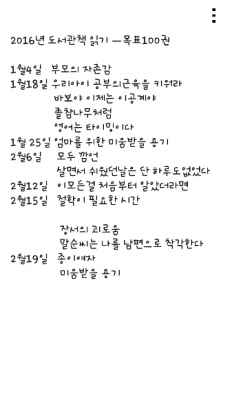 2016년 도서관책 읽기 —목표100권
1월4일 부모의 자존감
1월18일 우리아이 공부의근육을 키워라
바보야 이제는 이공계야
졸참나무처럼
영어는 타이밍이다
1월 25일 엄마를 위한 미움받을 용기
2월6일 모두 깜언
살면서 쉬웠던날은 단 하루도없었다
2월12일 이모든걸 처음부터 알았더라면
2월15일 철학이 필요한 시간
장서의 괴로움
말순씨는 나를 남편으로 착각한다
2월19일 종이여자
미움받을 용기